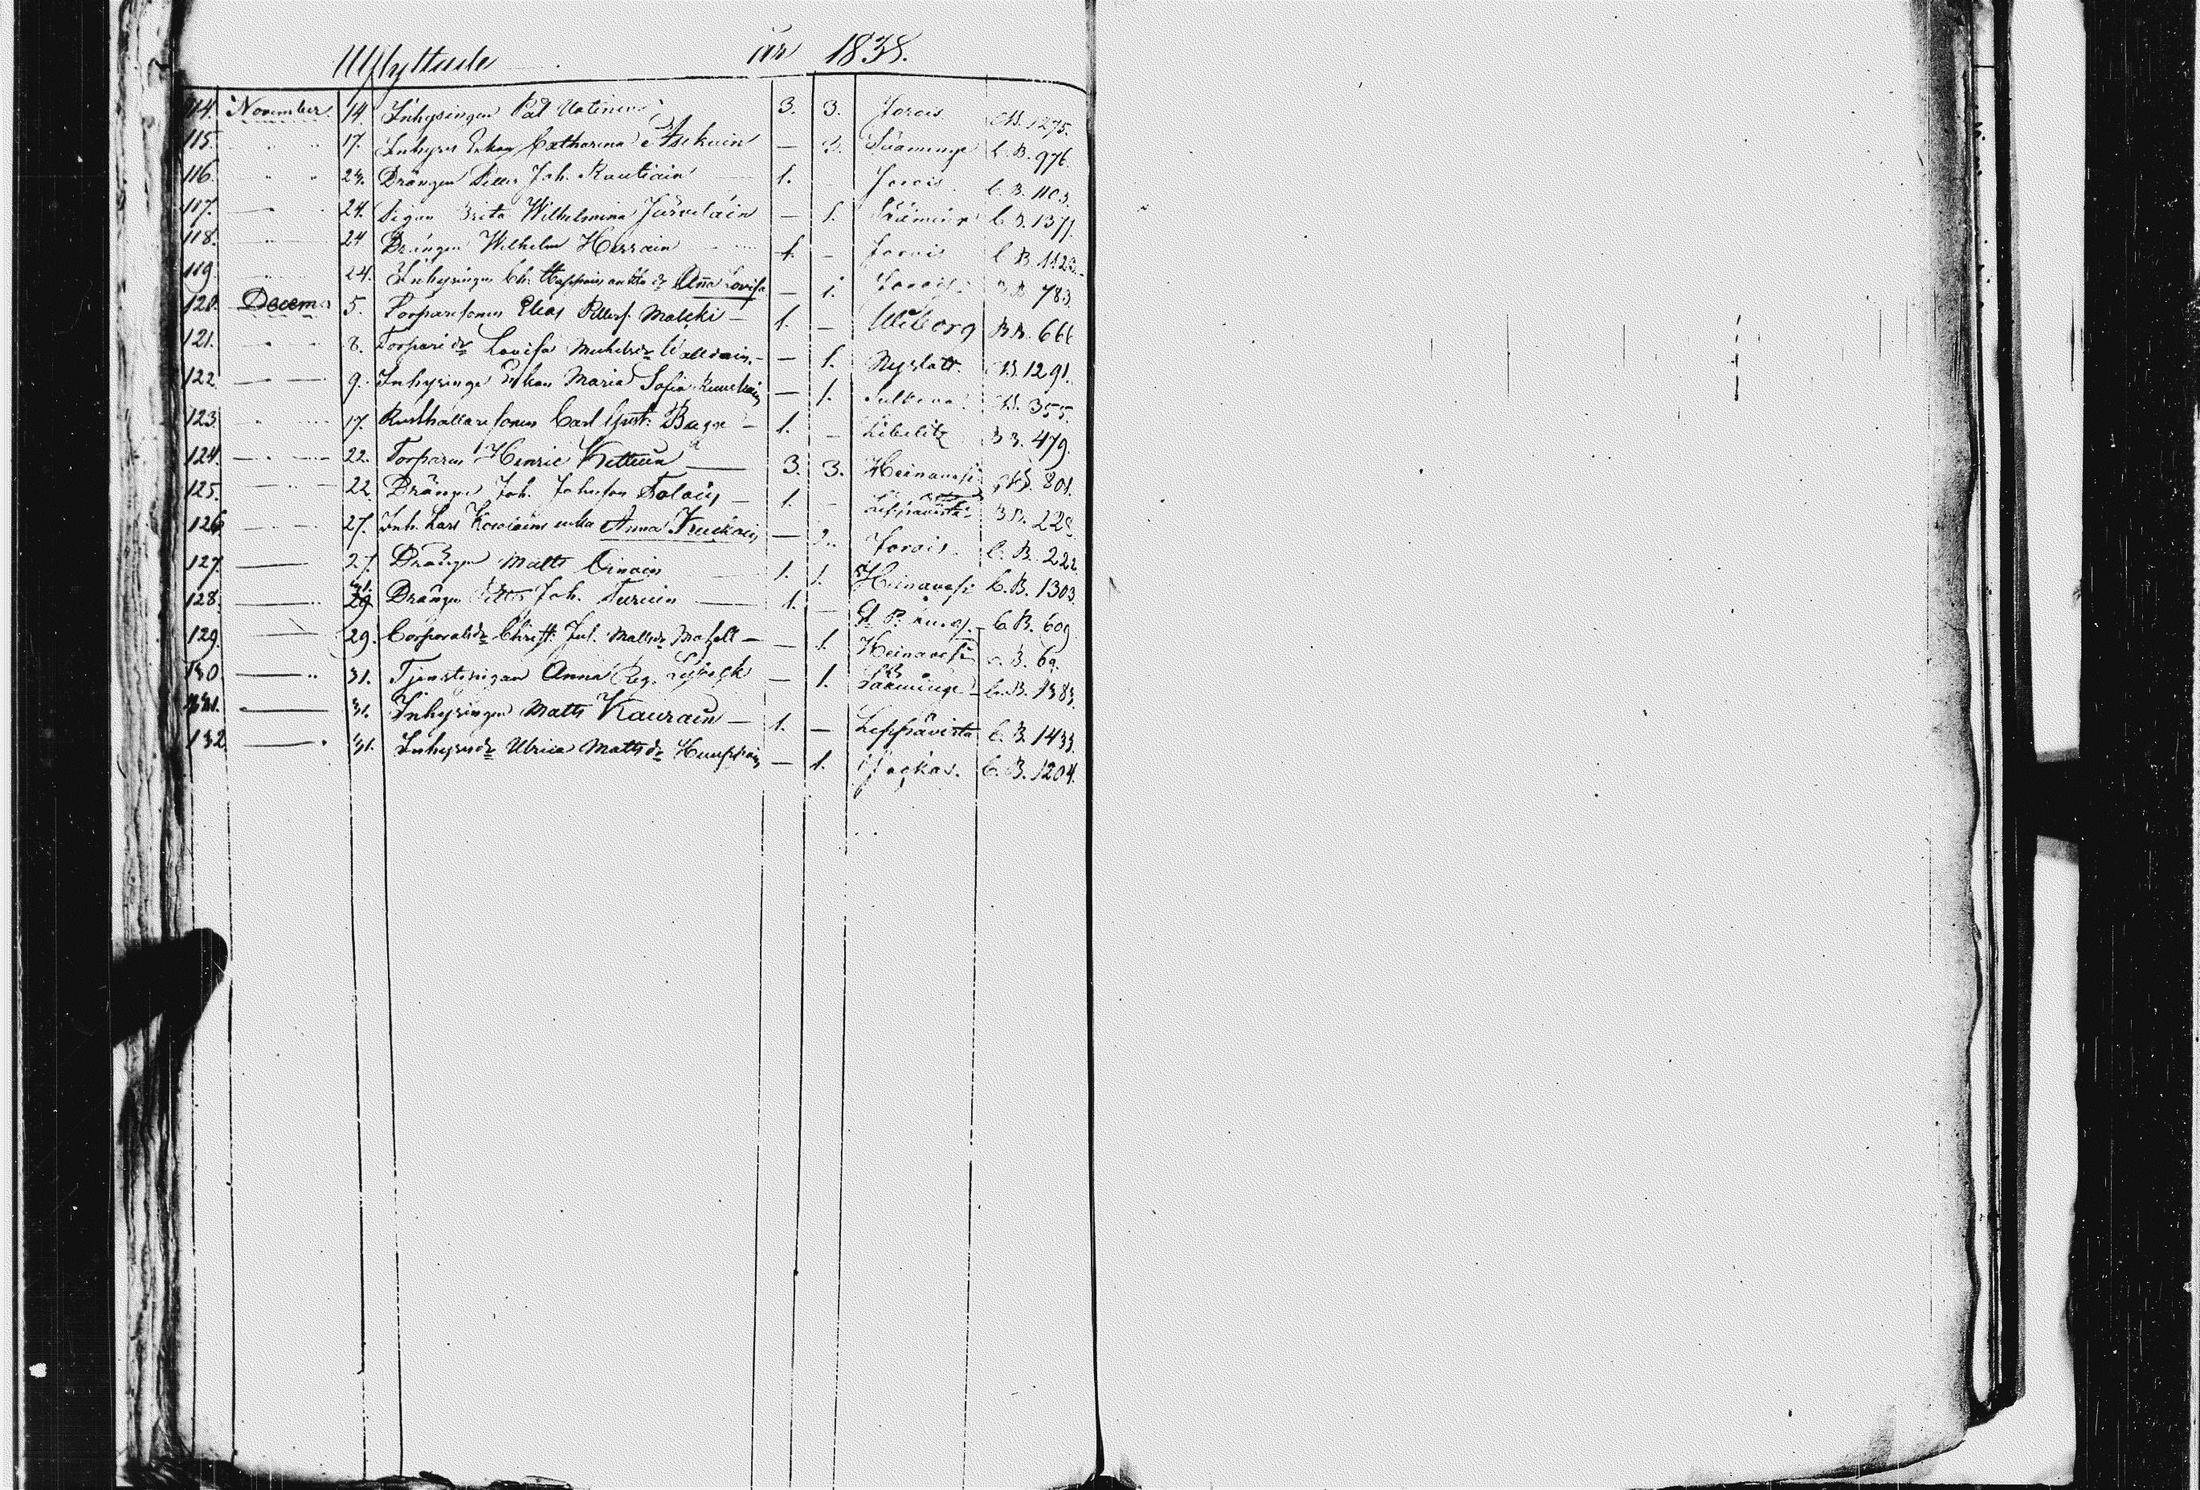 Utflyttade år 1838.
114. November 14. Inhysingen Pål 3. 3. Jorois 1275.
115. 17. Inhyses Enkan Catharina Asikain — Sääminge C.B. 976.
116. 24. Drängen Petter Joh. Rautiain 1. - Jorois C.B. 1103.
117. 24. Pigan Brita Wilhelmina Järvelain — 1. Sääminge C.B. 1377.
118. 24 Drängen Wilhelm Herrain 1. - Jorois C.B.
119. 24. Inhysingen Ch. enka Anna Lovisa — 1. Jorois B.B. 783.
120. Decem 5. Torparesonen Elias Pettersf. Matski — 1. — Wiborg B.B. 666
121. 8. Torpare dr Lovisa Michelsdr — 1. Nyslott. 1291.
122. 9. Inhysinge Enkan Maria Sofia — 1. Sulkava 355.
123. 17. Rusthållaresonen Carl Gust. Bagge — 1. — Libelitz B.B. 479.
124. 22. Torparen Henric Kettuin — 3. 3. Heinävesi 801.
125. 22. Drängen Joh. Johnson Tolain — 1. — Leppävirta B.B. 228
126 27. Inh. Lars enka Anna — 2. Jorois C.B. 222
127. — 27. Drängen Matts 1. 1. Heinävesi C.B. 1303.
128. — 29 31. Drängen Petter Joh. Turuin — 1. — C.B. 609
129. — 29. Corporalsdr Christ. Jul. Mattsdr Masell — — 1. Heinävesi C.B. 69.
130 — 31. Tjenstepigan Anna Reg. — 1. Sääminge C.B. 1383.
131. — 31. Inhysingen Matts Kaurain — 1. — Leppävirta C.B. 1433.
132 — 31. Inhysesdr Ulrica Mattsdr Huuppain — 1. Jockas. C.B. 1204.